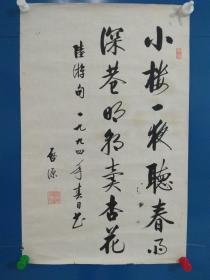 小楼一夜聽春雨
深巷明朝賣杏花
陸游句 一九九四年春日书